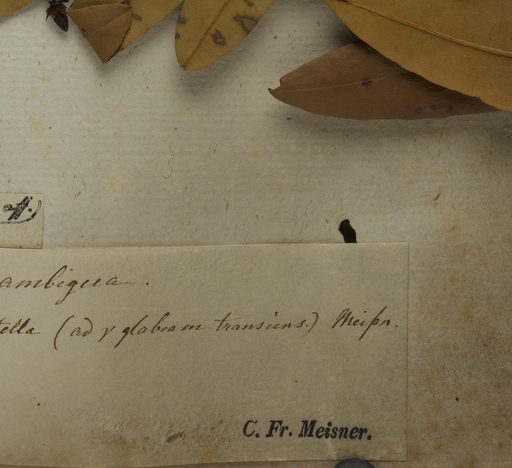 ambigua.
tella (ad γ glabram transiens.) Meisn.
C. Fr. Meisner.